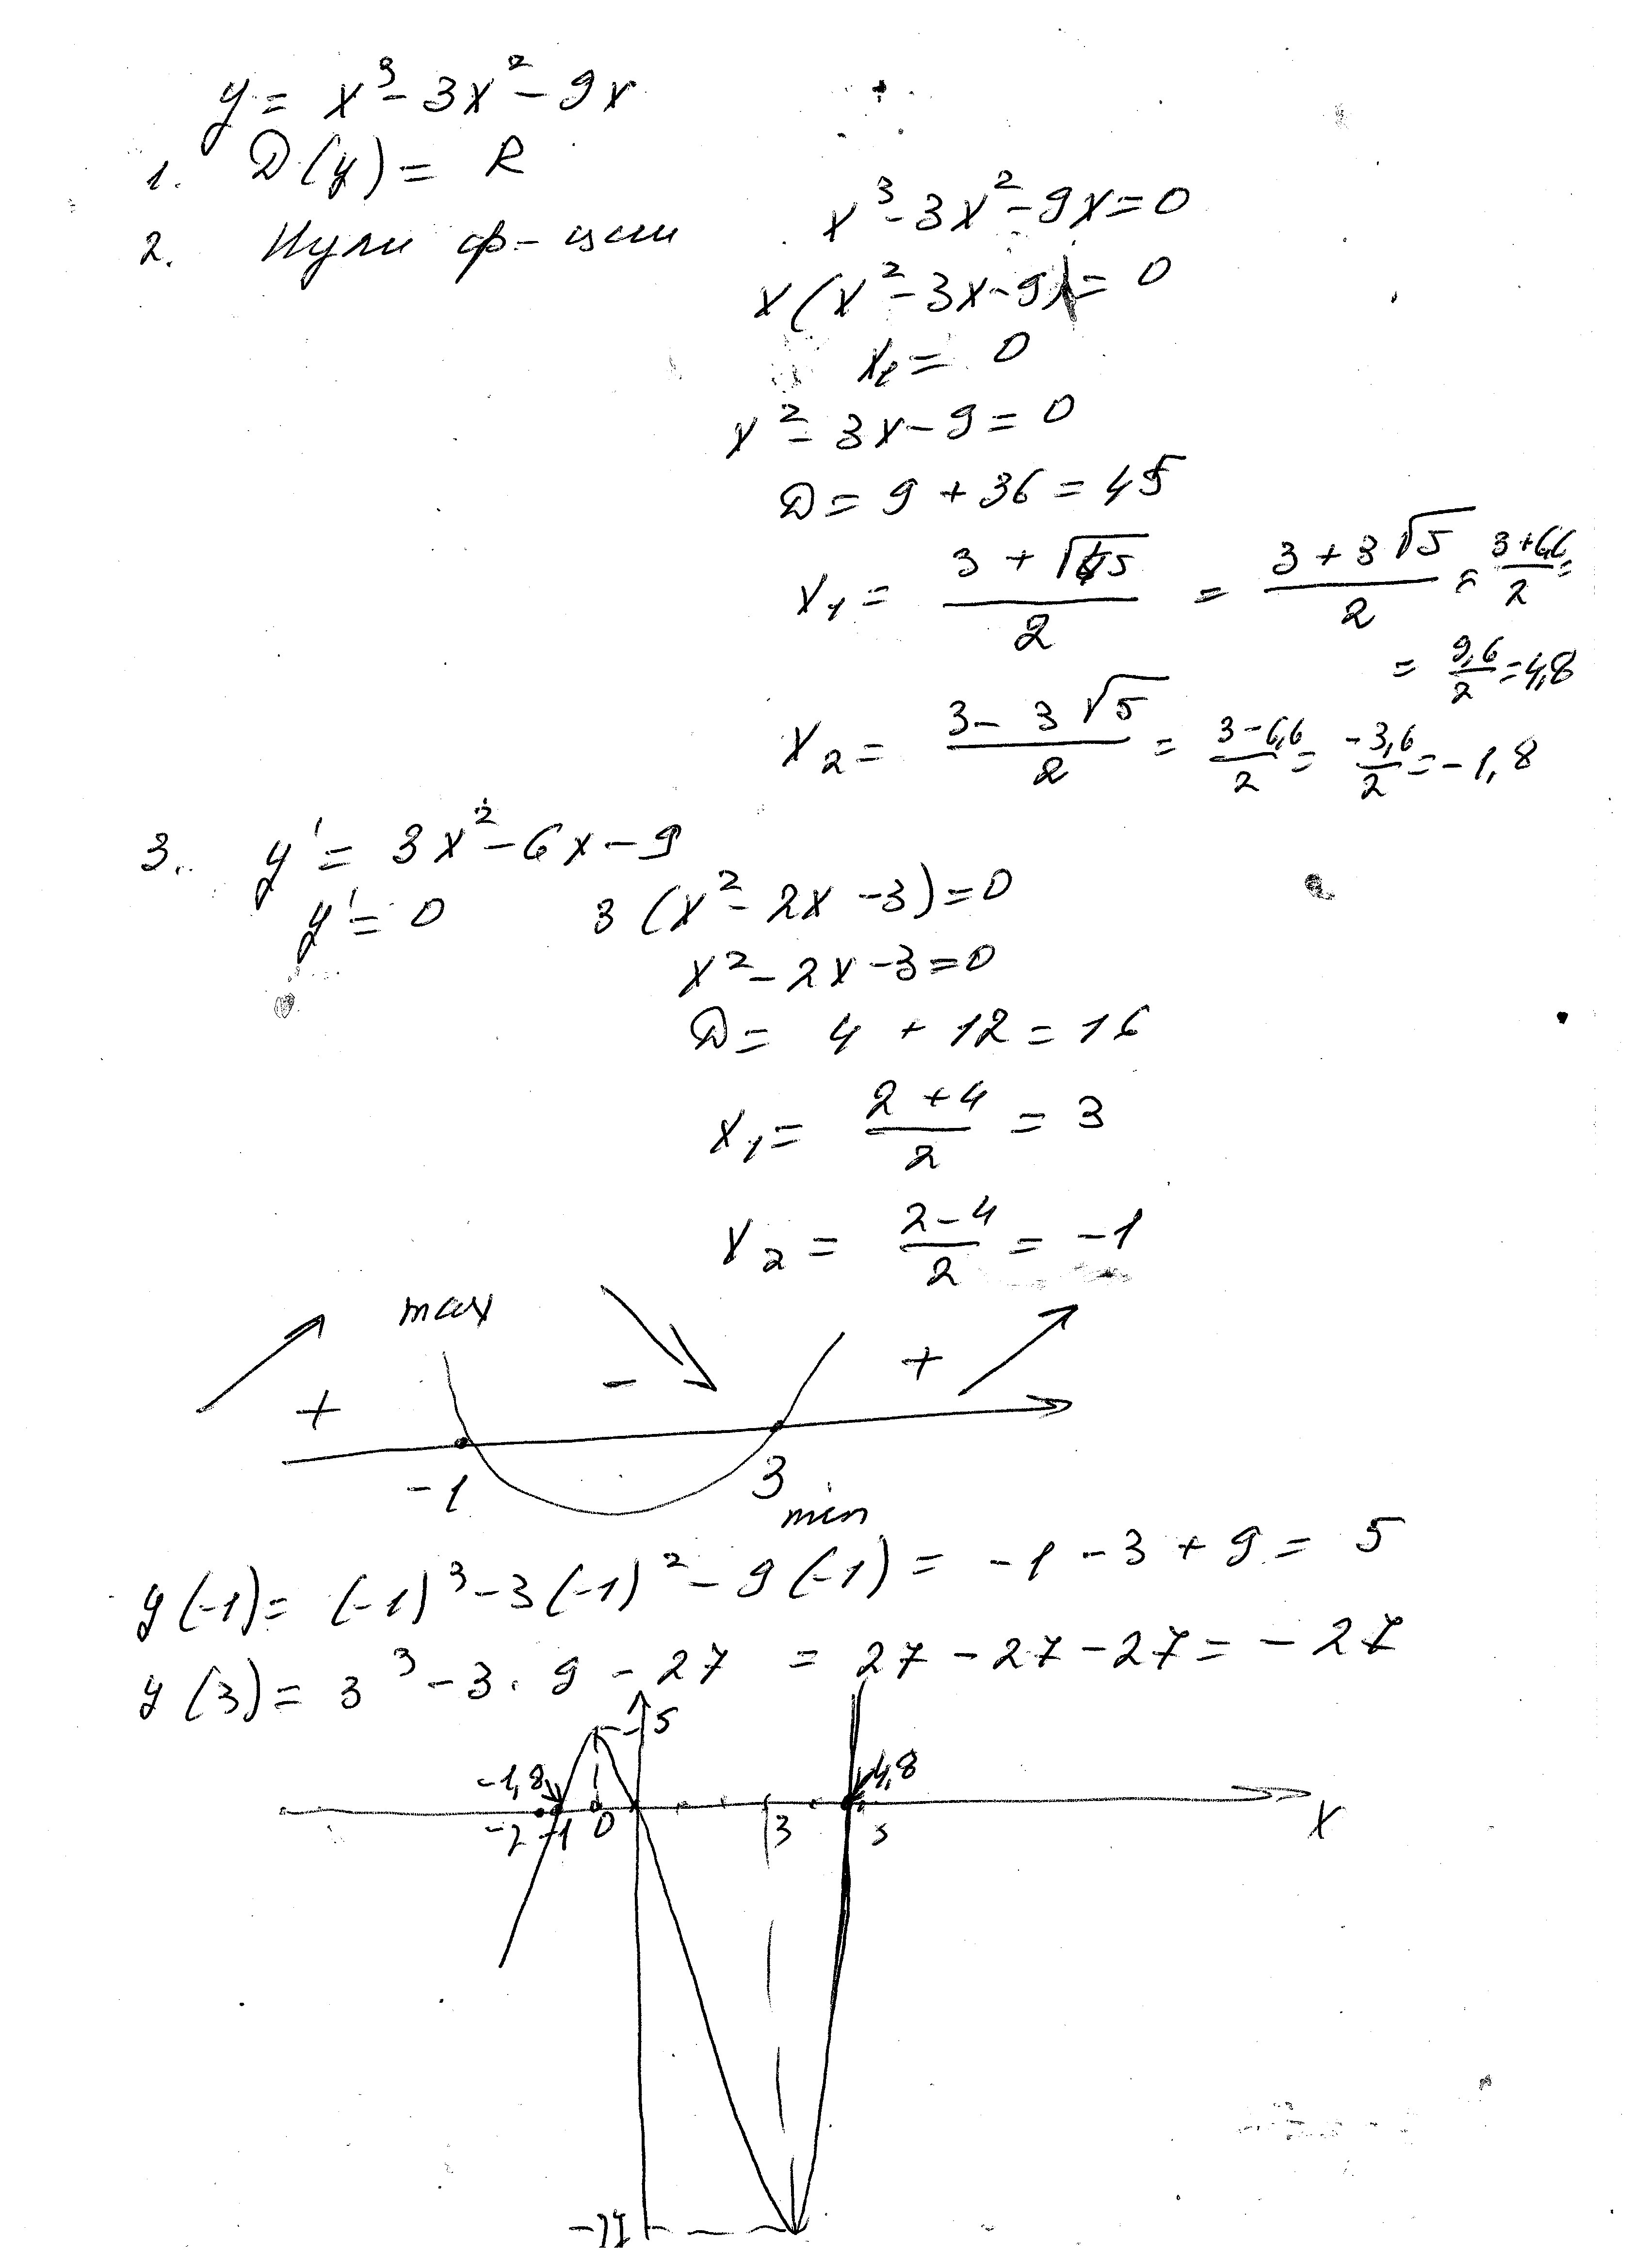 y = x³ - 3x² - 9x
1. D(y) = R
2. Нули ф-ции x³ - 3x² - 9x = 0
x(x² - 3x - 9) = 0
x₁ = 0
x² - 3x - 9 = 0
D = 9 + 36 = 45
x₁ = (3 + √45)/2 = (3 + 3√5)/2 = (3+6,6)/2 =
= 9,6/2 = 4,8
x₂ = (3 - 3√5)/2 = (3-6,6)/2 = -3,6/2 = -1,8
3. y' = 3x² - 6x - 9
y' = 0 3(x² - 2x - 3) = 0
x² - 2x - 3 = 0
D = 4 + 12 = 16
x₁ = (2 + 4)/2 = 3
x₂ = (2 - 4)/2 = -1
max
+ - +
-1 3
min
y(-1) = (-1)³ - 3(-1)² - 9(-1) = -1 - 3 + 9 = 5
y(3) = 3³ - 3·9 - 27 = 27 - 27 - 27 = -27
5
-1,8 4,8
-2 -1 0 3 5 x